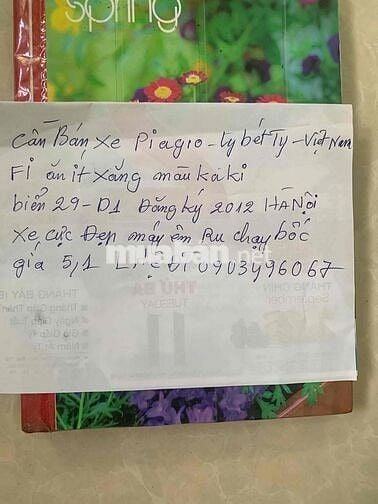 spring
Cần Bán xe Piagio - ly bét Ty - Việt Nam
Fi ăn ít xăng màu kaki
biển 29-D1 Đăng ký 2012 HÀ Nội
xe cực Đẹp máy êm Ru chạy bốc
giá 5,1 L/hệ ĐT 0903496067
muaban.net
THÁNG BẢY
THỨ BA
TUESDAY
THÁNG CHÍN
September